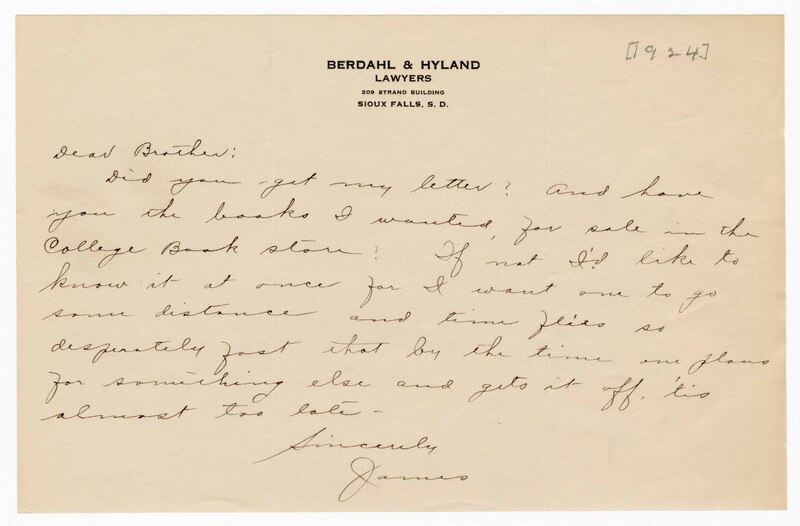 [1924]
BERDAHL & HYLAND
LAWYERS
209 STRAND BUILDING
SIOUX FALLS, S. D.
Dear Brother:
Did you get my letter? And have
you the books I wanted, for sale in the
College Book store? If not I'd like to
know it at once for I want one to go
some distance and time flies so
desperately fast that by the time one plans
for something else and gets it off, 'tis
almost too late -
Sincerely
James